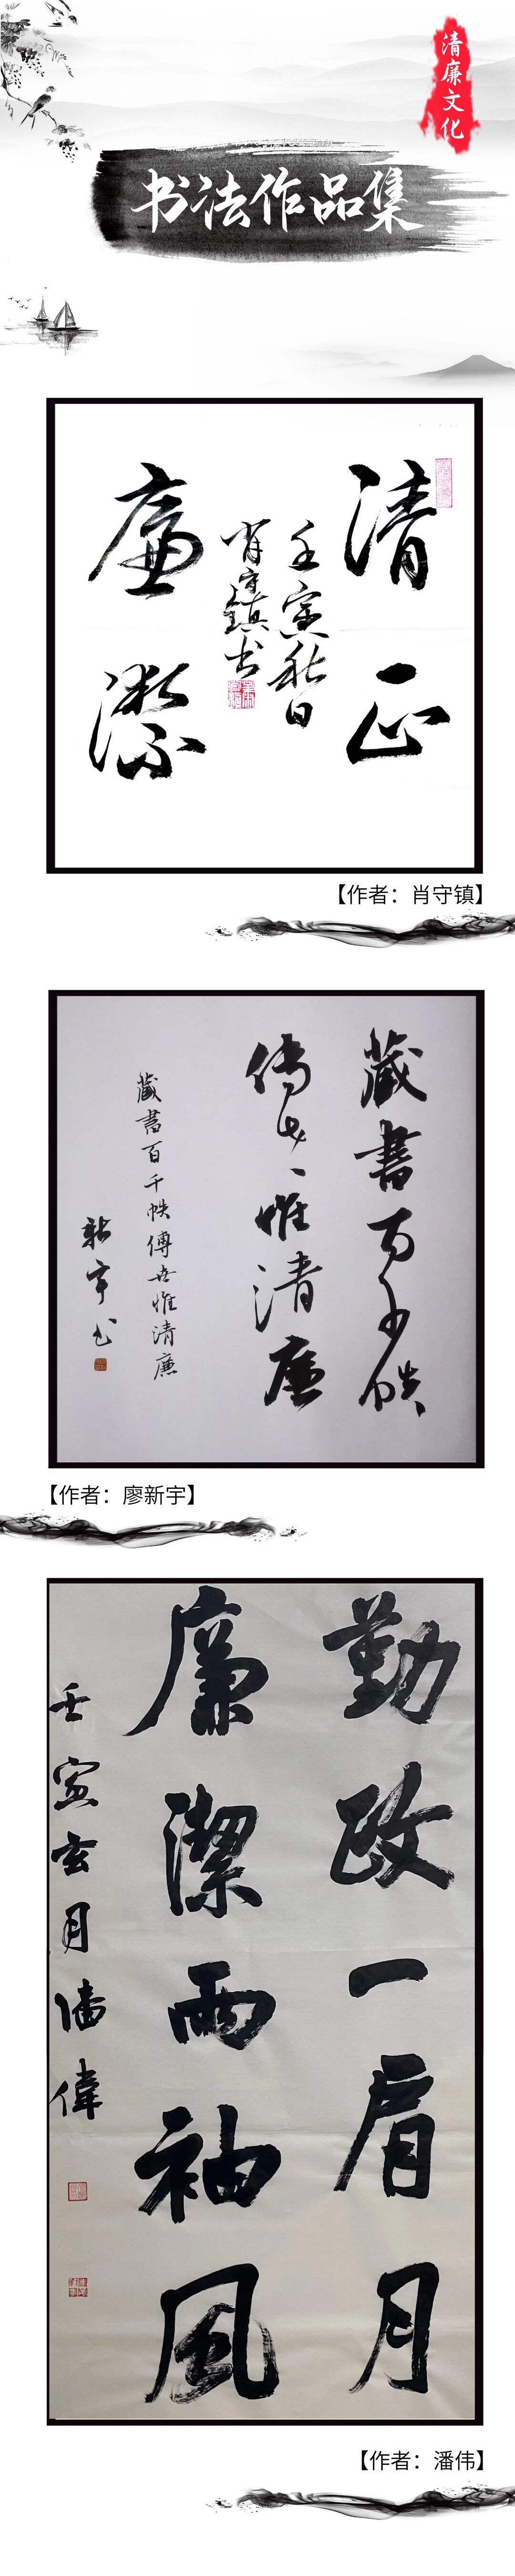 清廉文化
书法作品集
清正
廉潔
壬寅秋日
肖守镇书
【作者：肖守镇】
藏書百千帙
傳世惟清廉
藏書百千帙傳世惟清廉
新宇书
【作者：廖新宇】
勤政一肩月
廉潔兩袖風
壬寅玄月潘偉
【作者：潘伟】